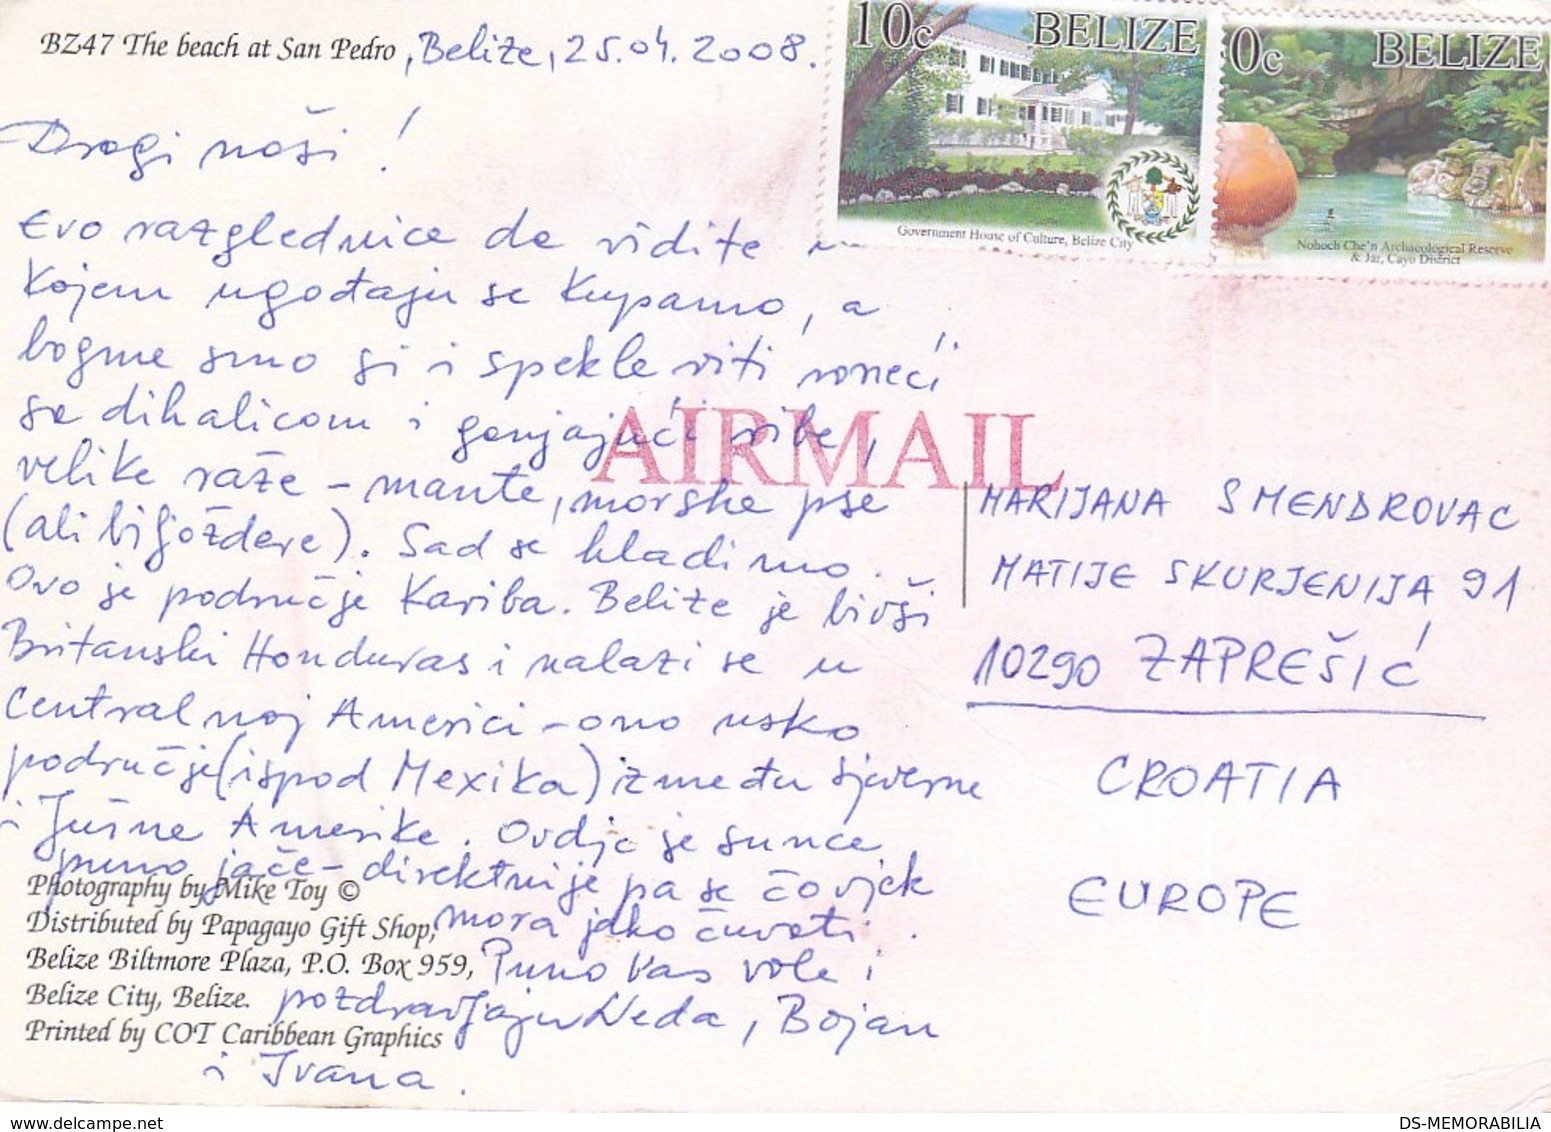 BZ47 The beach at San Pedro, Belize, 25.04.2008.
10c BELIZE
Government House of Culture, Belize City
0c BELIZE
Nohoch Che'n Archaeological Reserve
& Jar, Cayo District
Dragi naši!
Evo razglednice da vidite u
kojem ugođaju se kupamo, a
bogme smo si i spekle riti roneći
sa dihalicom i ganjajući ribe,
velike raže – mante, morske pse
(ali biljoždere). Sad se hladimo.
Ovo je područje Kariba. Belize je bivši
Britanski Honduras i nalazi se u
Centralnoj Americi – ono usko
područje (ispod Mexika) između Sjeverne
i Južne Amerike. Ovdje je sunce
puno jače – direktnije pa se čovjek
mora jako čuvati.
Puno Vas vole i
pozdravljaju Neda, Bojan
i Ivana.
Photography by Mike Toy ©
Distributed by Papagayo Gift Shop,
Belize Biltmore Plaza, P.O. Box 959,
Belize City, Belize.
Printed by COT Caribbean Graphics
AIRMAIL
MARIJANA SMENDROVAC
MATIJE SKURJENIJA 91
10290 ZAPREŠIĆ
CROATIA
EUROPE
DS-MEMORABILIA